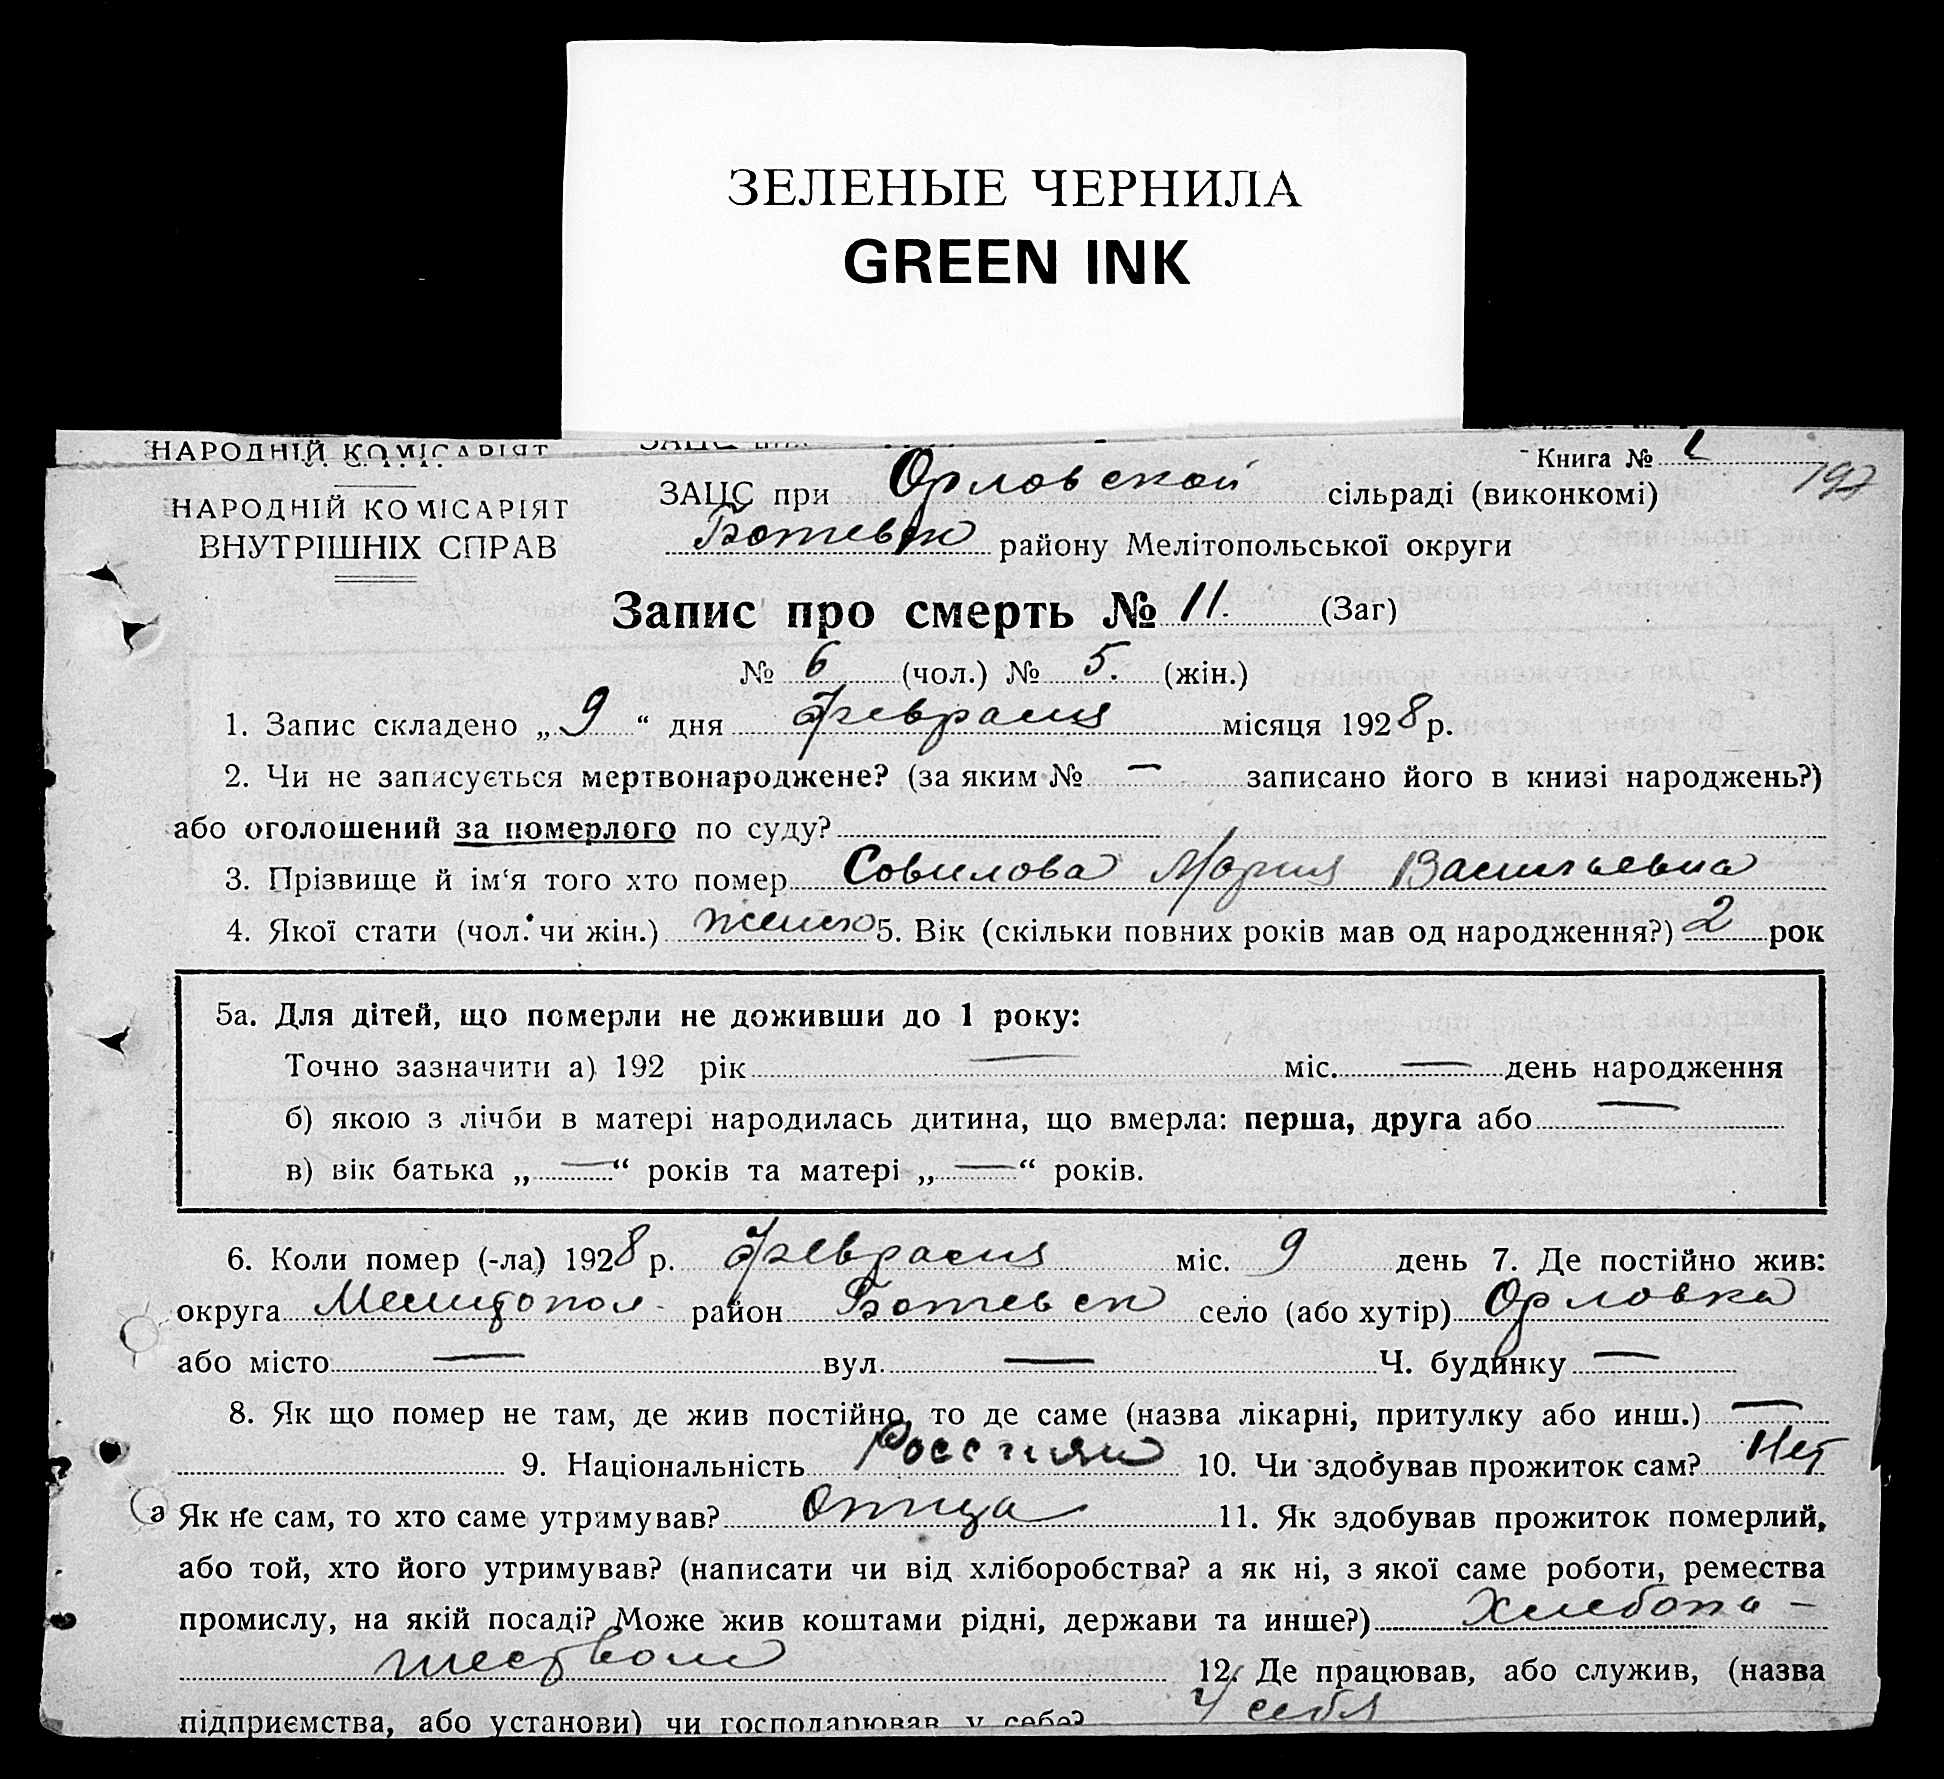 ЗЕЛЕНЫЕ ЧЕРНИЛА
GREEN INK
НАРОДНІЙ КОМІСАРІЯТ
Книга № 1
197
НАРОДНІЙ КОМІСАРІЯТ
ВНУТРІШНІХ СПРАВ
ЗАЦС при Орловской сільраді (виконкомі)
Ботевск району Мелітопольської округи
Запис про смерть № 11. (Заг)
№ 6 (чол.) № 5. (жін.)
1. Запис складено „ 9 “ дня Февраля місяця 1928 р.
2. Чи не записується мертвонароджене? (за яким № — записано його в книзі народжень?)
або оголошений за померлого по суду?
3. Прізвище й ім‘я того хто помер Совилова Мария Васильевна
4. Якої стати (чол. чи жін.) женск 5. Вік (скільки повних років мав од народження?) 2 рок
5а. Для дітей, що померли не доживши до 1 року:
Точно зазначити а) 192 рік — міс. — день народження
б) якою з лічби в матері народилась дитина, що вмерла: перша, друга або —
в) вік батька „ — “ років та матері „ — “ років.
6. Коли помер (-ла) 1928 р. Февраля міс. 9 день 7. Де постійно жив:
округа Мелитопол- район Ботевск село (або хутір) Орловка
або місто — вул. — Ч. будинку —
8. Як що помер не там, де жив постійно, то де саме (назва лікарні, притулку або инш.) —
9. Національність Россиян 10. Чи здобував прожиток сам? Нет
Як не сам, то хто саме утримував? Отица 11. Як здобував прожиток померлий,
або той, хто його утримував? (написати чи від хліборобства? а як ні, з якої саме роботи, ремества
промислу, на якій посаді? Може жив коштами рідні, держави та инше?) Хлебопа-
шеством 12. Де працював, або служив, (назва
підприємства, або установи) чи господарював у себе? У себя